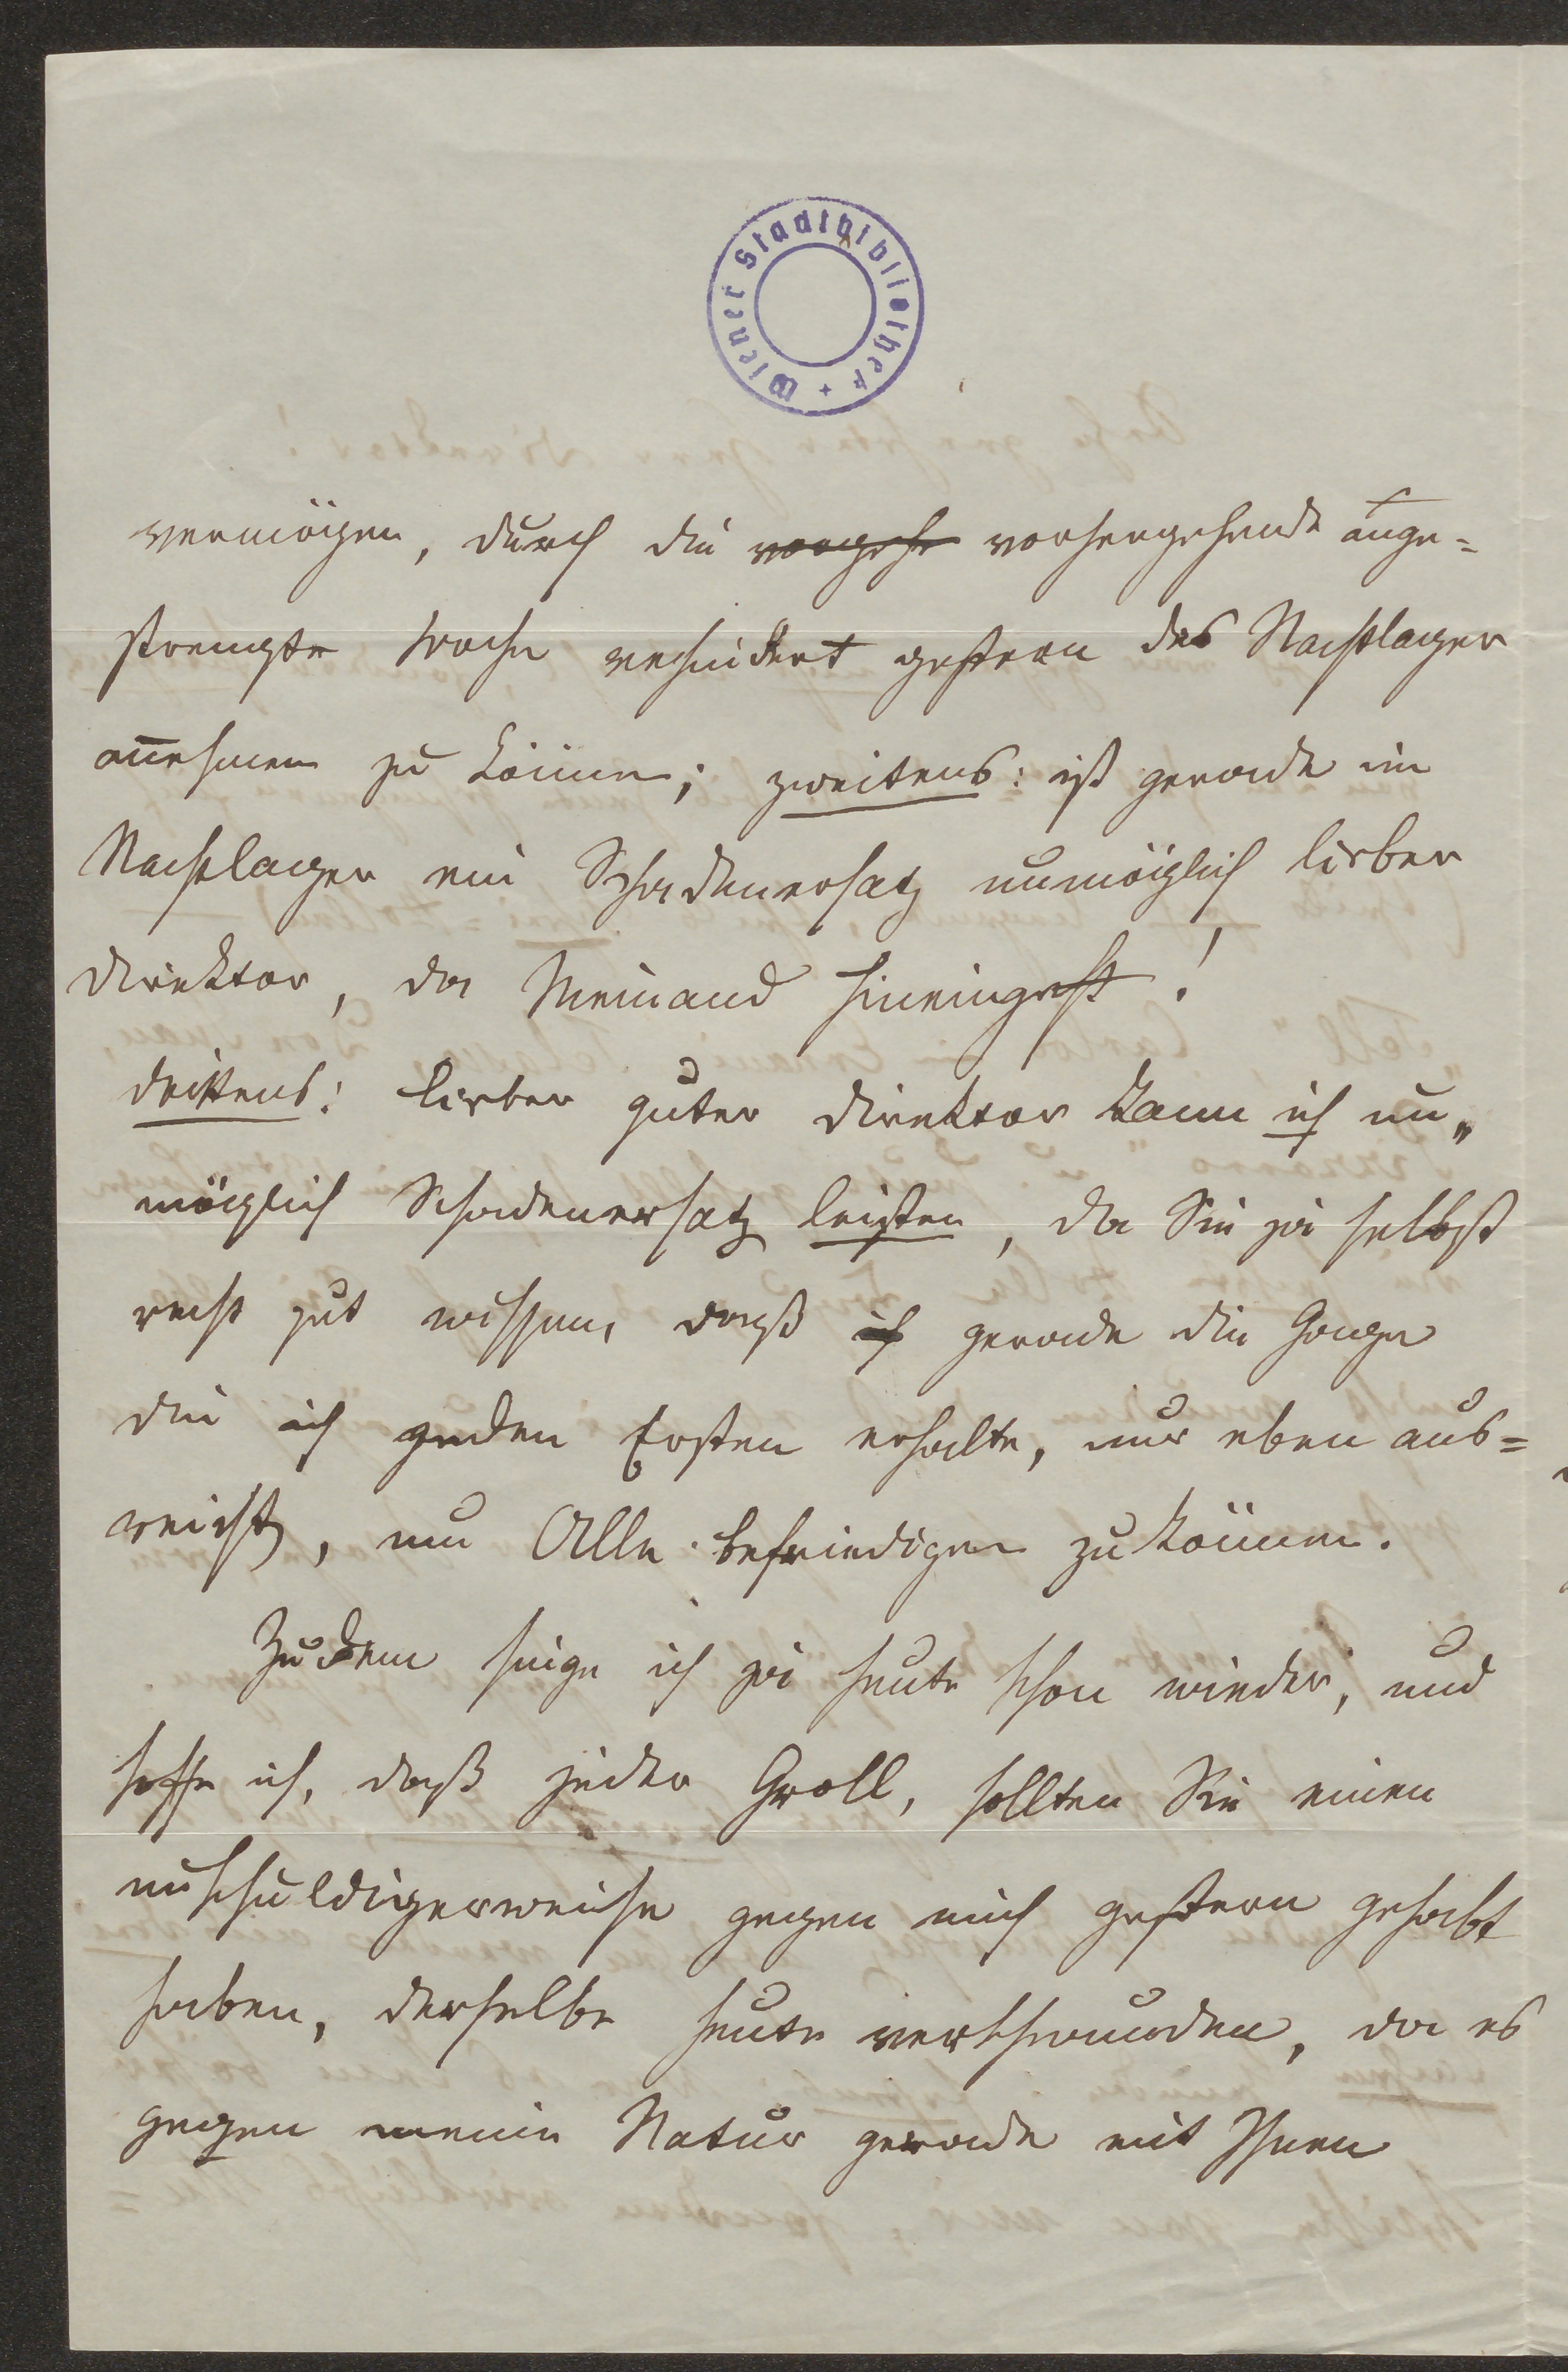 Wiener Stadtbibliothek +
vermögen, durch die vorgehe vorhergehende ange=
strengte Woche verhindert gestern das Nachtlager
annehmen zu können; zweitens: ist gerade im
Nachtlager ein Schadenersatz unmöglich lieber
Direktor, da Niemand hineingeht!
drittens: lieber guter Direktor kann ich un„
möglich Schadenersatz leisten, da Sie ja selbst
recht gut wissen, daß ich gerade die Gage
die ich jeden Ersten erhalte, nur eben aus=
reicht, um Alle befriedigen zu können.
Zudem singe ich ja heute schon wieder, und
hoffe ich, daß jeder Groll, sollten Sie einen
unschuldigerweise gegen mich gestern gehabt
haben, derselbe heute verschwunden, da es
gegen meine Natur gerade mit Ihnen